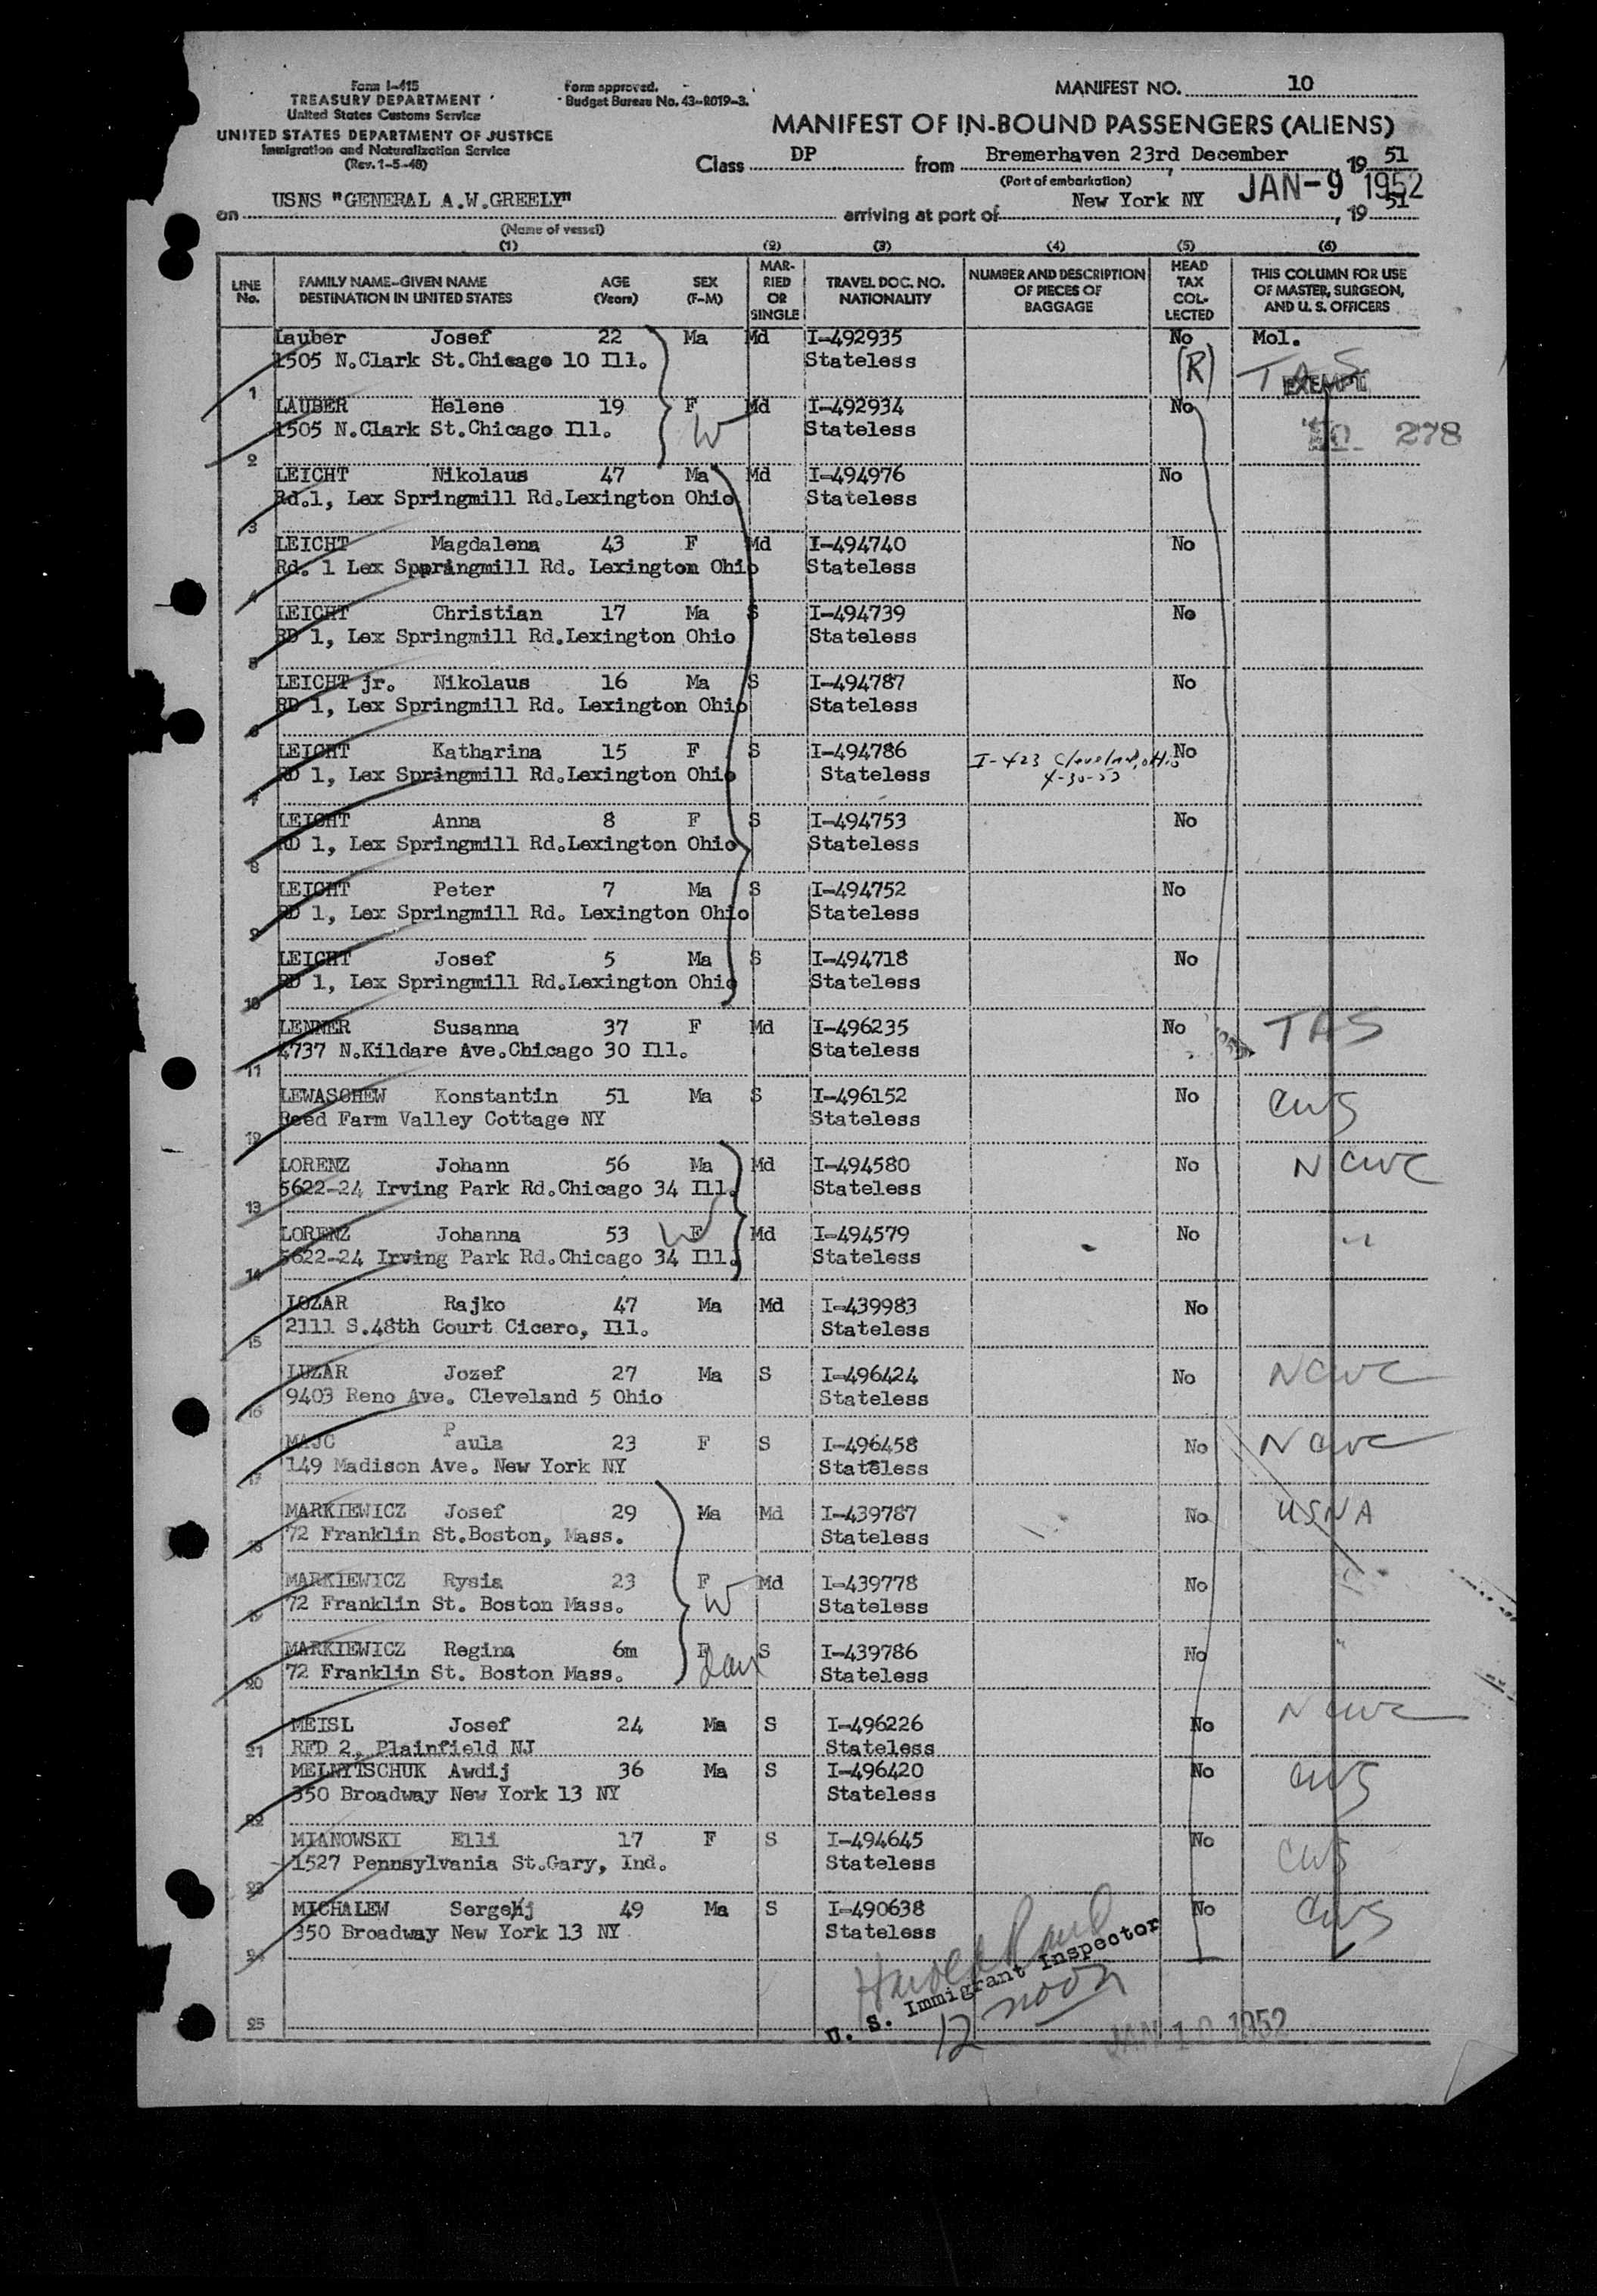 Form I-415
TREASURY DEPARTMENT
United States Customs Service
UNITED STATES DEPARTMENT OF JUSTICE
Immigration and Naturalization Service
(Rev. 1-5-48)
Form approved.
Budget Bureau No. 43-R019-3.
MANIFEST NO. 10
MANIFEST OF IN-BOUND PASSENGERS (ALIENS)
Class DP from Bremerhaven 23rd December, 19 51
(Port of embarkation)
JAN-9 1952
on USNS "GENERAL A.W.GREELY" arriving at port of New York NY, 19 51
(Name of vessel)
(1) (2) (3) (4) (5) (6)
LINE No. FAMILY NAME-GIVEN NAME DESTINATION IN UNITED STATES AGE (Years) SEX (F-M) MARRIED OR SINGLE TRAVEL DOC. NO. NATIONALITY NUMBER AND DESCRIPTION OF PIECES OF BAGGAGE HEAD TAX COLLECTED THIS COLUMN FOR USE OF MASTER, SURGEON, AND U. S. OFFICERS
Lauber Josef 22 Ma Md I-492935 No Mol.
1505 N.Clark St.Chicago 10 Ill. Stateless (R) TAS
1 EXEMPT
LAUBER Helene 19 F Md I-492934 No
1505 N.Clark St.Chicago Ill. W Stateless 278
2
LEICHT Nikolaus 47 Ma Md I-494976 No
Rd.1, Lex Springmill Rd.Lexington Ohio Stateless
3
LEICHT Magdalena 43 F Md I-494740 No
Rd. 1 Lex Sppringmill Rd. Lexington Ohio Stateless
4
LEICHT Christian 17 Ma S I-494739 No
RD 1, Lex Springmill Rd.Lexington Ohio Stateless
5
LEICHT jr. Nikolaus 16 Ma S I-494787 No
RD 1, Lex Springmill Rd. Lexington Ohio Stateless
6
LEICHT Katharina 15 F S I-494786 I-423 Cleveland, Ohio No
RD 1, Lex Springmill Rd.Lexington Ohio Stateless
7
LEICHT Anna 8 F S I-494753 No
RD 1, Lex Springmill Rd.Lexington Ohio Stateless
8
LEICHT Peter 7 Ma S I-494752 No
RD 1, Lex Springmill Rd. Lexington Ohio Stateless
9
LEICHT Josef 5 Ma S I-494718 No
RD 1, Lex Springmill Rd.Lexington Ohio Stateless
10
LENNER Susanna 37 F Md I-496235 No TAS
4737 N.Kildare Ave.Chicago 30 Ill. Stateless
11
LEWASCHEW Konstantin 51 Ma S I-496152 No CWS
Reed Farm Valley Cottage NY Stateless
12
LORENZ Johann 56 Ma Md I-494580 No NCWC
5622-24 Irving Park Rd.Chicago 34 Ill. Stateless
13
LORENZ Johanna 53 W F Md I-494579 No "
5622-24 Irving Park Rd.Chicago 34 Ill. Stateless
14
LOZAR Rajko 47 Ma Md I-439983 No
2111 S.48th Court Cicero, Ill. Stateless
15
LUZAR Jozef 27 Ma S I-496424 No NCWC
9403 Reno Ave. Cleveland 5 Ohio Stateless
16
MAJC Paula 23 F S I-496458 No NCWC
149 Madison Ave. New York NY Stateless
17
MARKIEWICZ Josef 29 Ma Md I-439787 No USNA
72 Franklin St.Boston, Mass. Stateless
18
MARKIEWICZ Rysia 23 F Md I-439778 No
72 Franklin St. Boston Mass. W Stateless
19
MARKIEWICZ Regina 6m F S I-439786 No "
72 Franklin St. Boston Mass. dau Stateless
20
MEISL Josef 24 Ma S I-496226 No NCWC
21 RFD 2, Plainfield NJ Stateless
MELNYTSCHUK Awdij 36 Ma S I-496420 No CWS
350 Broadway New York 13 NY Stateless
22
MIANOWSKI Elli 17 F S I-494645 No CWS
1527 Pennsylvania St.Gary, Ind. Stateless
23
MICHALEW Sergehj 49 Ma S I-490638 No CWS
350 Broadway New York 13 NY Stateless
24
Harold
U. S. Immigrant Inspector
12 noon
25 JAN 10 1952